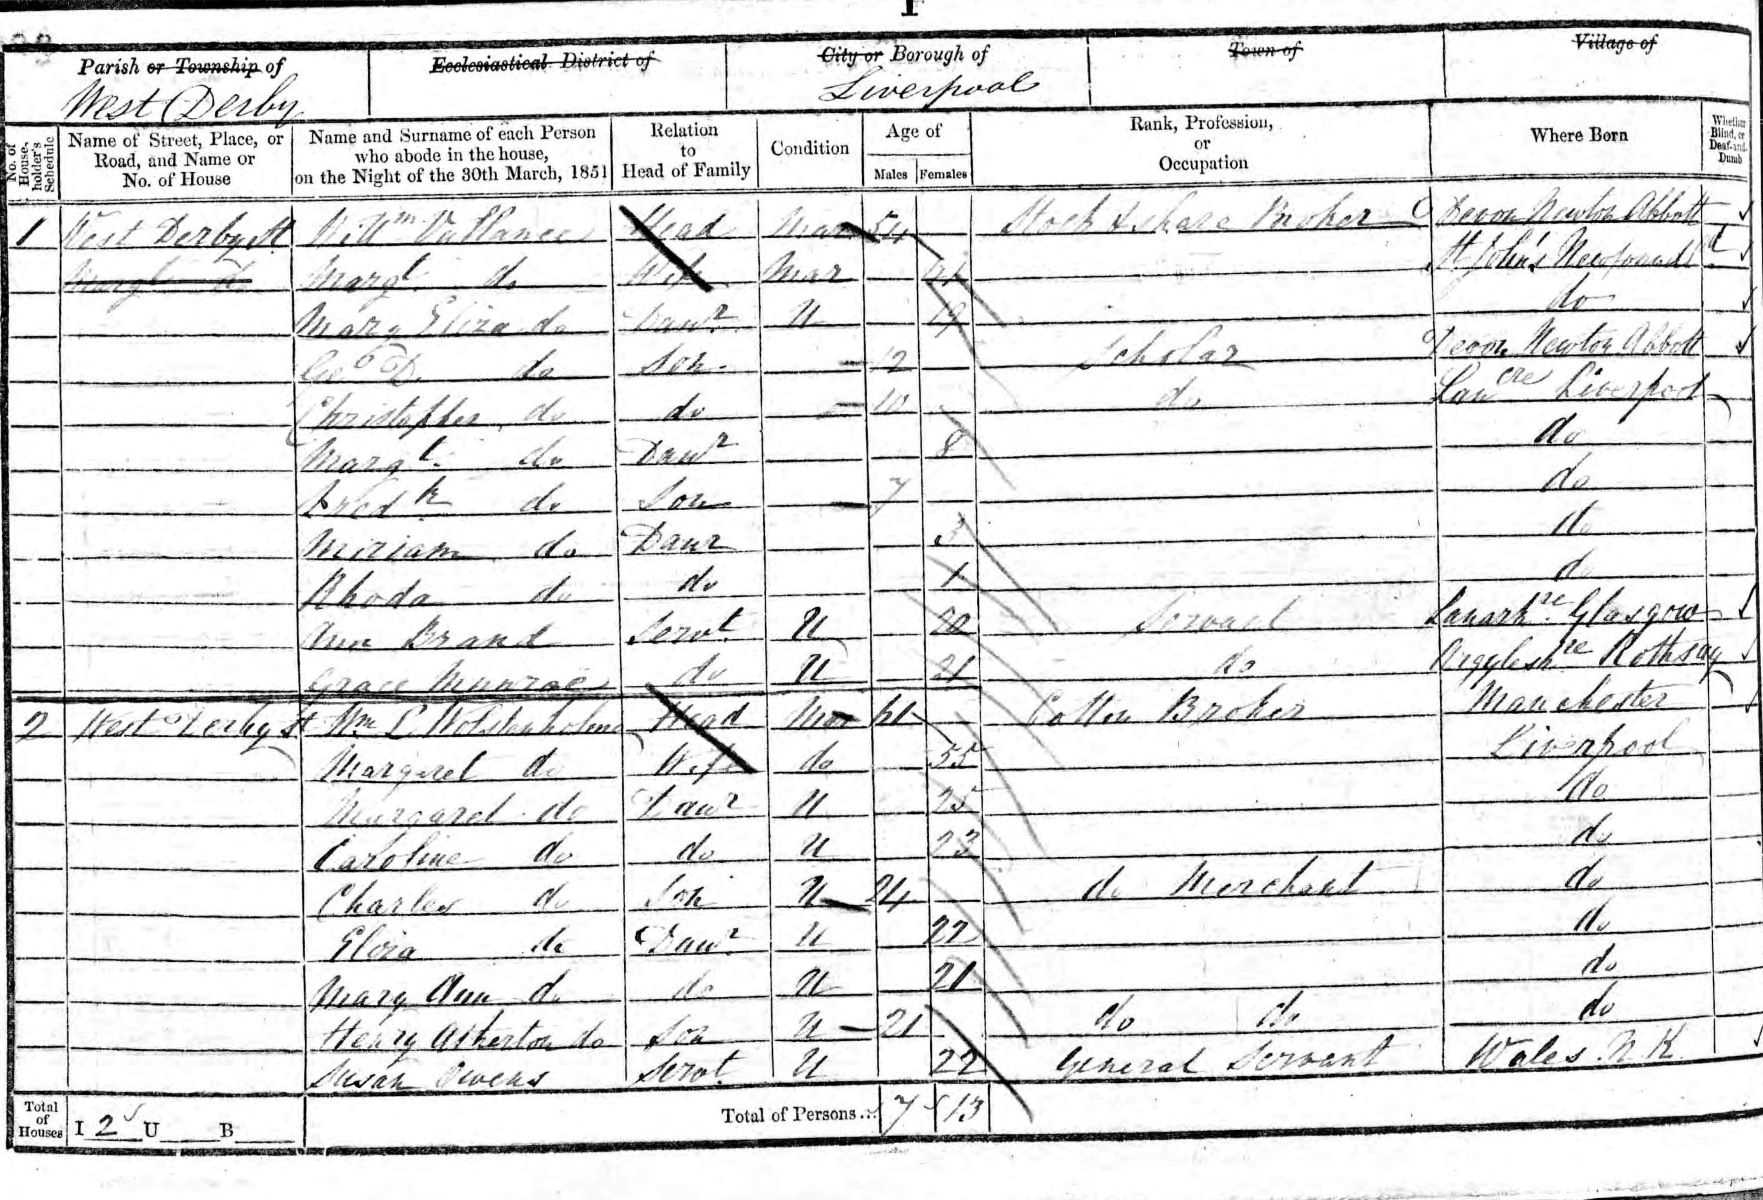 Parish or Township of Ecclesiastical District of City or Borough of Town of Village of
West Derby Liverpool
No. of House-holder's Schedule Name of Street, Place, or Road, and Name or No. of House Name and Surname of each Person who abode in the house, on the Night of the 30th March, 1851 Relation to Head of Family Condition Age of Males Females Rank, Profession, or Occupation Where Born Whether Blind, or Deaf-and-Dumb
1 West Derby St Willm Vallance Head Mar 54 Stock & Share Broker Devon Newton Abbott
Margt do Margt do Wife Mar St John's Newfound
Mary Eliza do Daur U 19 do
Geo D. do Son 12 Scholar Devon Newton Abbott
Christopher do do 10 do Lancre Liverpool
Margt do Daur 8 do
Fredk do Son 7 do
Miriam do Daur 3 do
Rhoda do do 1 do
Ann Brand Servt U 20 Servant Lanarkre Glasgow
Grace Munroe do U 21 do Argyleshre Rothsay
2 West Derby St Wm L Wolstenholme Head Mar 61 Cotton Broker Manchester
Margaret do Wife do 55 Liverpool
Margaret do Daur U 25 do
Caroline do do U 23 do
Charles do Son U 24 do Merchant do
Eliza do Daur U 22 do
Mary Ann do do U 21 do
Henry Atherton do Son U 21 do do do
Susan Owens Servt U 22 General Servant Wales N.K.
Total of Houses I 2 U B Total of Persons... 7 13